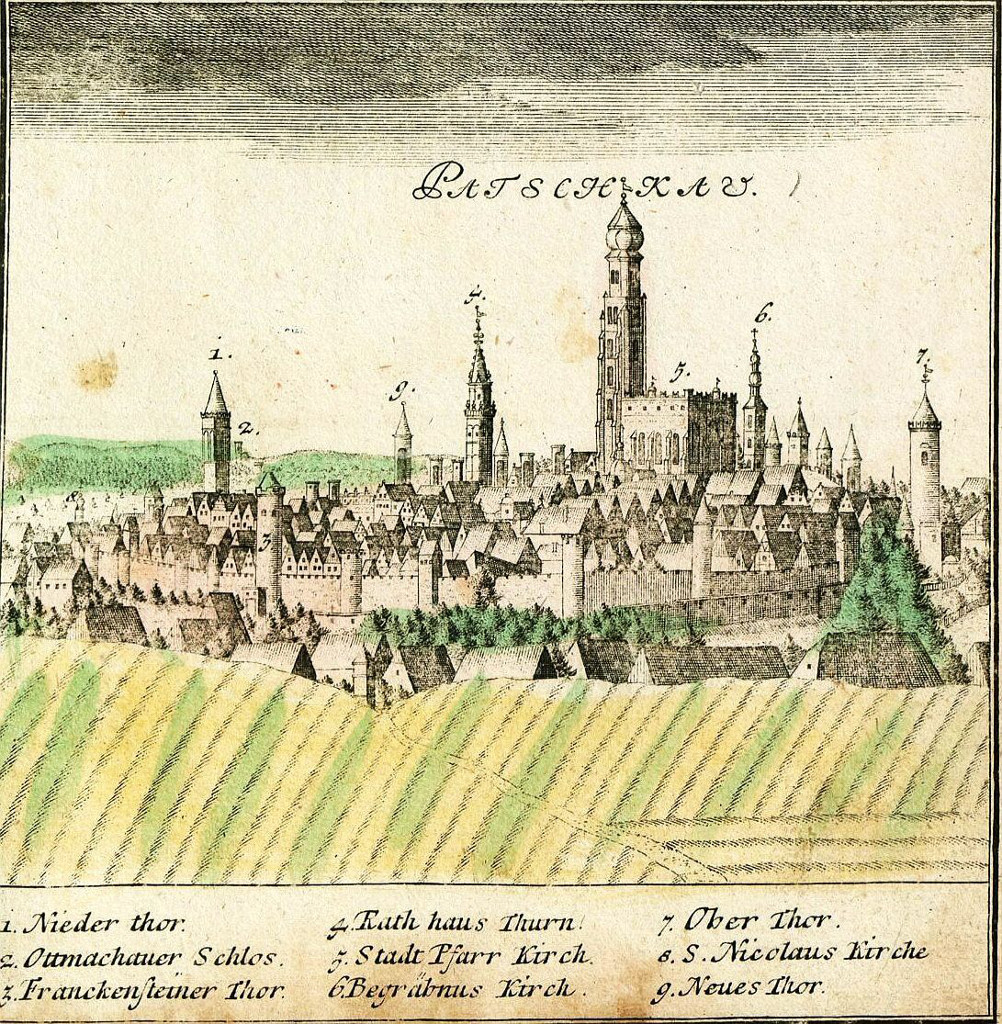 PATSCHKAU.
4.
6.
1.
7.
5.
9.
2.
8
3
1. Nieder thor.
2. Ottmachauer Schlos.
3. Franckensteiner Thor.
4. Rath haus Thurn.
5. Stadt Pfarr Kirch.
6. Begräbnus Kirch.
7. Ober Thor.
8. S. Nicolaus Kirche
9. Neues Thor.